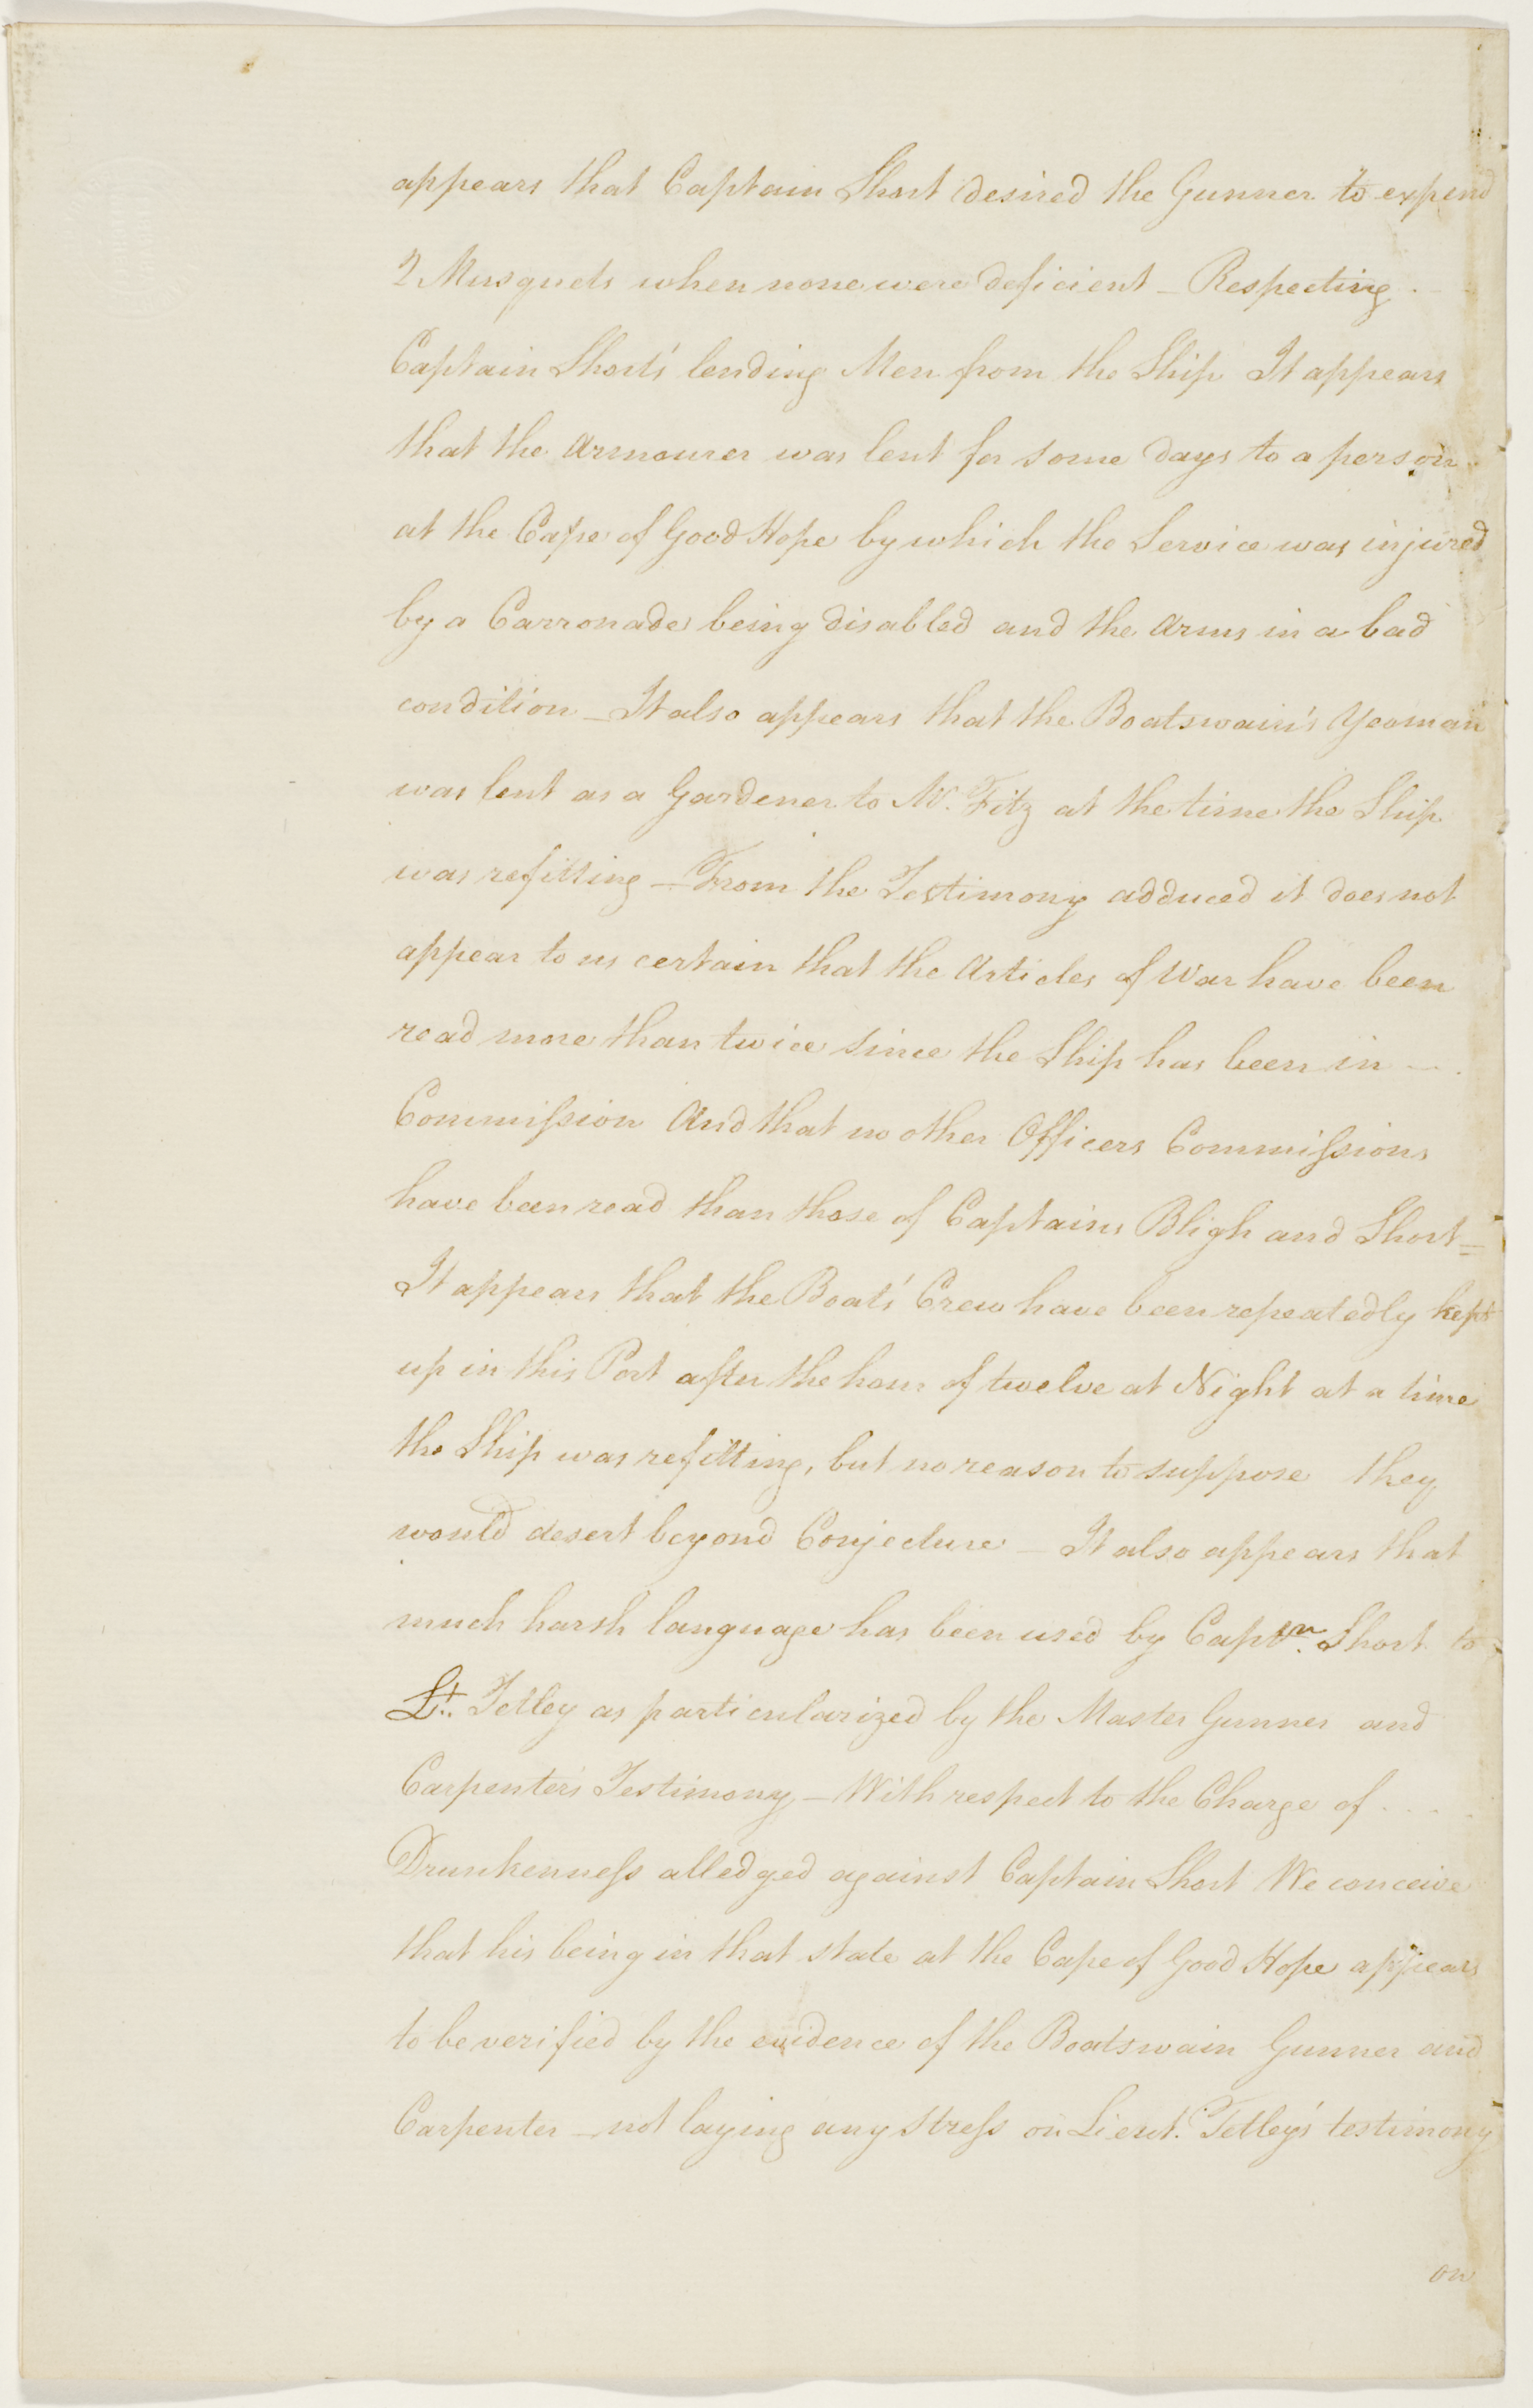 appears that Captain Short desired the Gunner to expend
2 Musquets when none were deficient – Respecting
Captain Short's lending Men from the Ship It appears
that the Armourer was lent for some days to a person
at the Cape of Good Hope by which the Service was injured
by a Carronade being disabled and the Arms in a bad
condition – It also appears that the Boatswain's Yeoman
was lent as a Gardener to Mr. Fitz at the time the Ship
was refitting – From the Testimony adduced it does not
appear to us certain that the Articles of War have been
read more than twice since the Ship has been in –
Commission And that no other Officers Commissions
have been read than those of Captains Bligh and Short =
It appears that the Boats' Crew have been repeatedly kept
up in this Port after the hour of twelve at Night at a time
the Ship was refitting, but no reason to suppose they
would desert beyond Conjecture – It also appears that
much harsh language has been used by Captn. Short to
Lt. Tetley as particularized by the Master Gunner and
Carpenter's Testimony – With respect to the Charge of . . .
Drunkenness alledged against Captain Short We conceive
that his being in that state at the Cape of Good Hope appears
to be verified by the evidence of the Boatswain Gunner and
Carpenter – not laying any stress on Lieut. Tetley's testimony
on